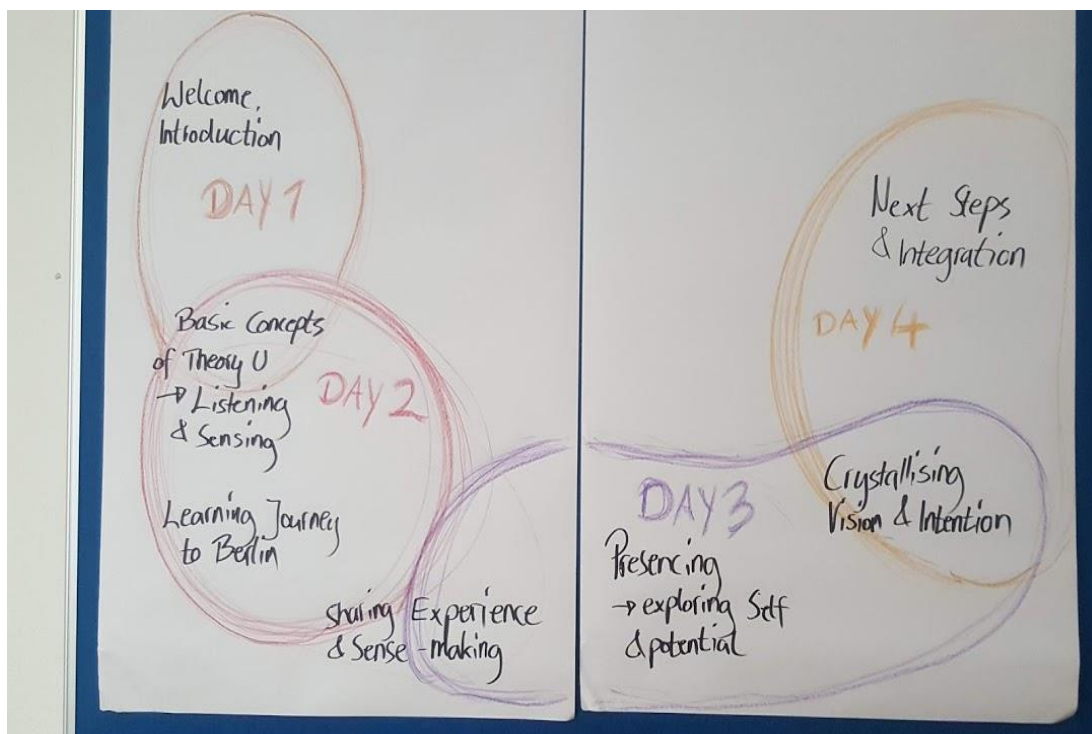 Welcome,
Introduction
DAY 1
Basic Concepts
of Theory U
→ Listening
& Sensing
DAY 2
Learning Journey
to Berlin
sharing Experience
& Sense-making
DAY 3
Presencing
→ exploring Self
& potential
Crystallising
Vision & Intention
DAY 4
Next Steps
& Integration